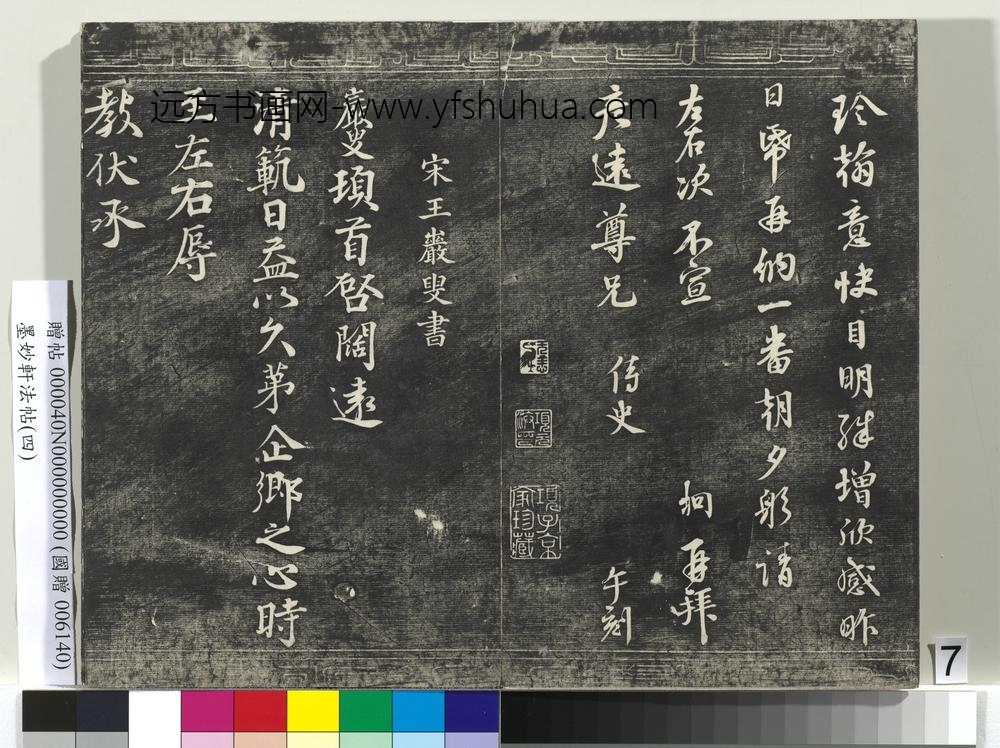 珍翰意快目明殊增欣感昨
日
再納一番朝夕躬請
左右次不宣
再拜
六遠尊兄侍史
午刻
項子京家珍藏
宋王巖叟書
巖叟頓首啓闊遠
清範日益以久第企鄉之心時
至左右辱
教伏承
远方书画网-www.yfshuhua.com
贈帖 000040N000000000 (國贈 006140)
墨妙軒法帖(四)
7